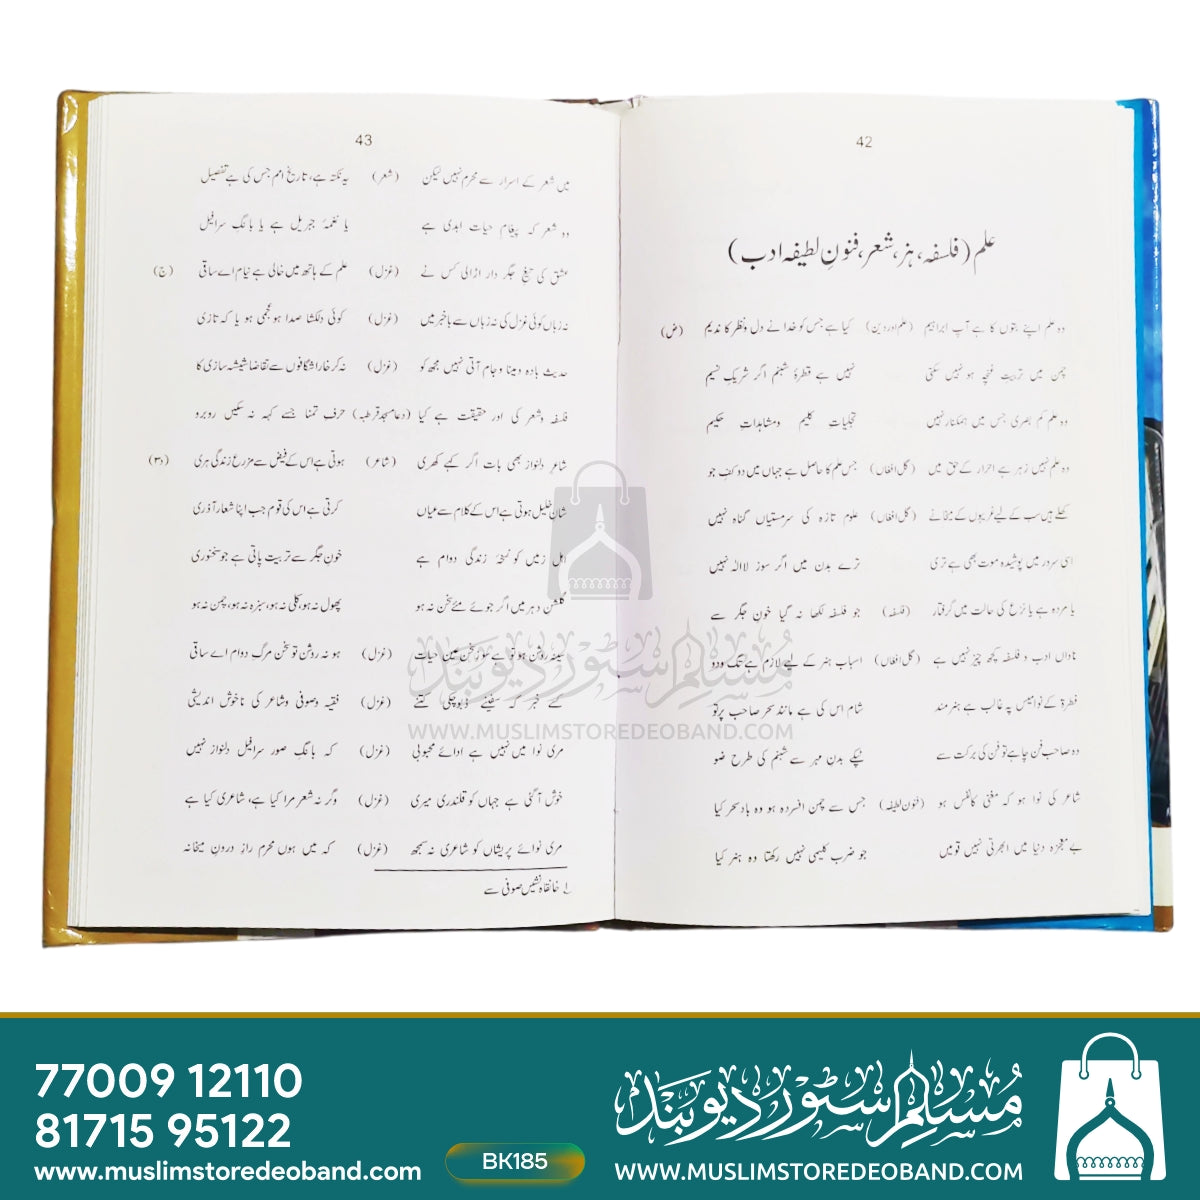 42
علم (فلسفہ، ہنر، شعر، فنونِ لطیفہ ادب)
وہ علم اپنے بتوں کا ہے آپ ابراہیم (علم اور دین) کیا ہے جس کو خدا نے دل و نظر کا ندیم (ض)
چمن میں تربیت غنچہ ہو نہیں سکتی نہیں ہے قطرۂ شبنم اگر شریکِ نسیم
وہ علم کم بصری جس میں ہمکنار نہیں تجلیات کلیم و مشاہدات حکیم
وہ علم نہیں زہر ہے احرار کے حق میں (گل افغاں) جس علم کا حاصل ہے جہاں میں دو کفِ جو
کھلے ہیں سب کے لیے غریبوں کے میخانے (گل افغاں) علوم تازہ کی سرمستیاں گناہ نہیں
اسی سرور میں پوشیدہ موت بھی ہے تری ترے بدن میں اگر سوز لا الٰہ نہیں
یا مردہ ہے یا نزع کی حالت میں گرفتار (فلسفہ) جو فلسفہ لکھا نہ گیا خونِ جگر سے
ناداں ادب و فلسفہ کچھ چیز نہیں ہے (گل افغاں) اسباب ہنر کے لیے لازم ہے تگ و دو
فطرۃ کے نوامیس پہ غالب ہے ہنرمند شام اس کی ہے مانند سحر صاحب پرتو
وہ صاحب فن چاہے تو فن کی برکت سے ٹپکے بدنِ مہر سے شبنم کی طرح ضو
شاعر کی نوا ہو کہ مغنی کا نفس ہو (فنون لطیفہ) جس سے چمن افسردہ ہو وہ باد سحر کیا
بے معجزہ دنیا میں ابھرتی نہیں قومیں جو ضرب کلیمی نہیں رکھتا وہ ہنر کیا
43
میں شعر کے اسرار سے محرم نہیں لیکن (شعر) یہ نکتہ ہے، تاریخِ امم جس کی ہے تفصیل
وہ شعر کہ پیغام حیات ابدی ہے یا نغمۂ جبریل ہے یا بانگ سرافیل
عشق کی تیغ جگر دار اڑا لی کس نے (غزل) علم کے ہاتھ میں خالی ہے نیام اے ساقی (ج)
نہ زباں کوئی غزل کی نہ زباں سے باخبر میں (غزل) کوئی دلکشا صدا ہو عجمی ہو یا کہ تازی
حدیث بادہ و مینا و جام آتی نہیں مجھ کو (غزل) نہ کر خارا شگافوں سے تقاضا شیشہ سازی کا
فلسفہ و شعر کی اور حقیقت ہے کیا (دعا مسجد قرطبہ) حرف تمنا جسے کہہ نہ سکیں روبرو
شاعر دلنواز بھی بات اگر کہے کھری (شاعر) ہوتی ہے اس کے فیض سے مزرعِ زندگی ہری
شانِ خلیل ہوتی ہے اس کے کلام سے عیاں کرتی ہے اس کی قوم جب اپنا شعار آذری
اہل زمیں کو نسخۂ زندگی دوام ہے خونِ جگر سے تربیت پاتی ہے جو سخنوری
گلشن دہر میں اگر جوئے مئے سخن نہ ہو پھول نہ ہو، کلی نہ ہو، سبزہ نہ ہو، چمن نہ ہو
سینہ روشن ہو تو ہے سوز سخن عین حیات (غزل) ہو نہ روشن تو سخن مرگِ دوام اے ساقی
کسے خبر کہ سفینے ڈبو چکی کتنے (غزل) فقیہ و صوفی و شاعر کی ناخوش اندیشی
مری نوا میں نہیں ہے ادائے محبوبی (غزل) کہ بانگ صور سرافیل دلنواز نہیں
خوش آ گئی ہے جہاں کو قلندری میری (غزل) وگر نہ شعر مرا کیا ہے، شاعری کیا ہے
مری نوائے پریشاں کو شاعری نہ سمجھ (غزل) کہ میں ہوں محرم رازِ درونِ میخانہ
خانقاہ نشیں صوفی سے
مسلم سٹور دیوبند
WWW.MUSLIMSTOREDEOBAND.COM
77009 12110
81715 95122
www.muslimstoredeoband.com
BK185
مسلم سٹور دیوبند
WWW.MUSLIMSTOREDEOBAND.COM